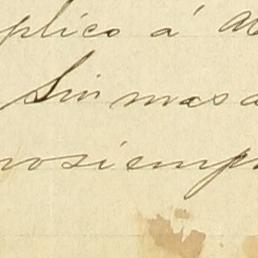 plico á
Sin mas a
rosiemp